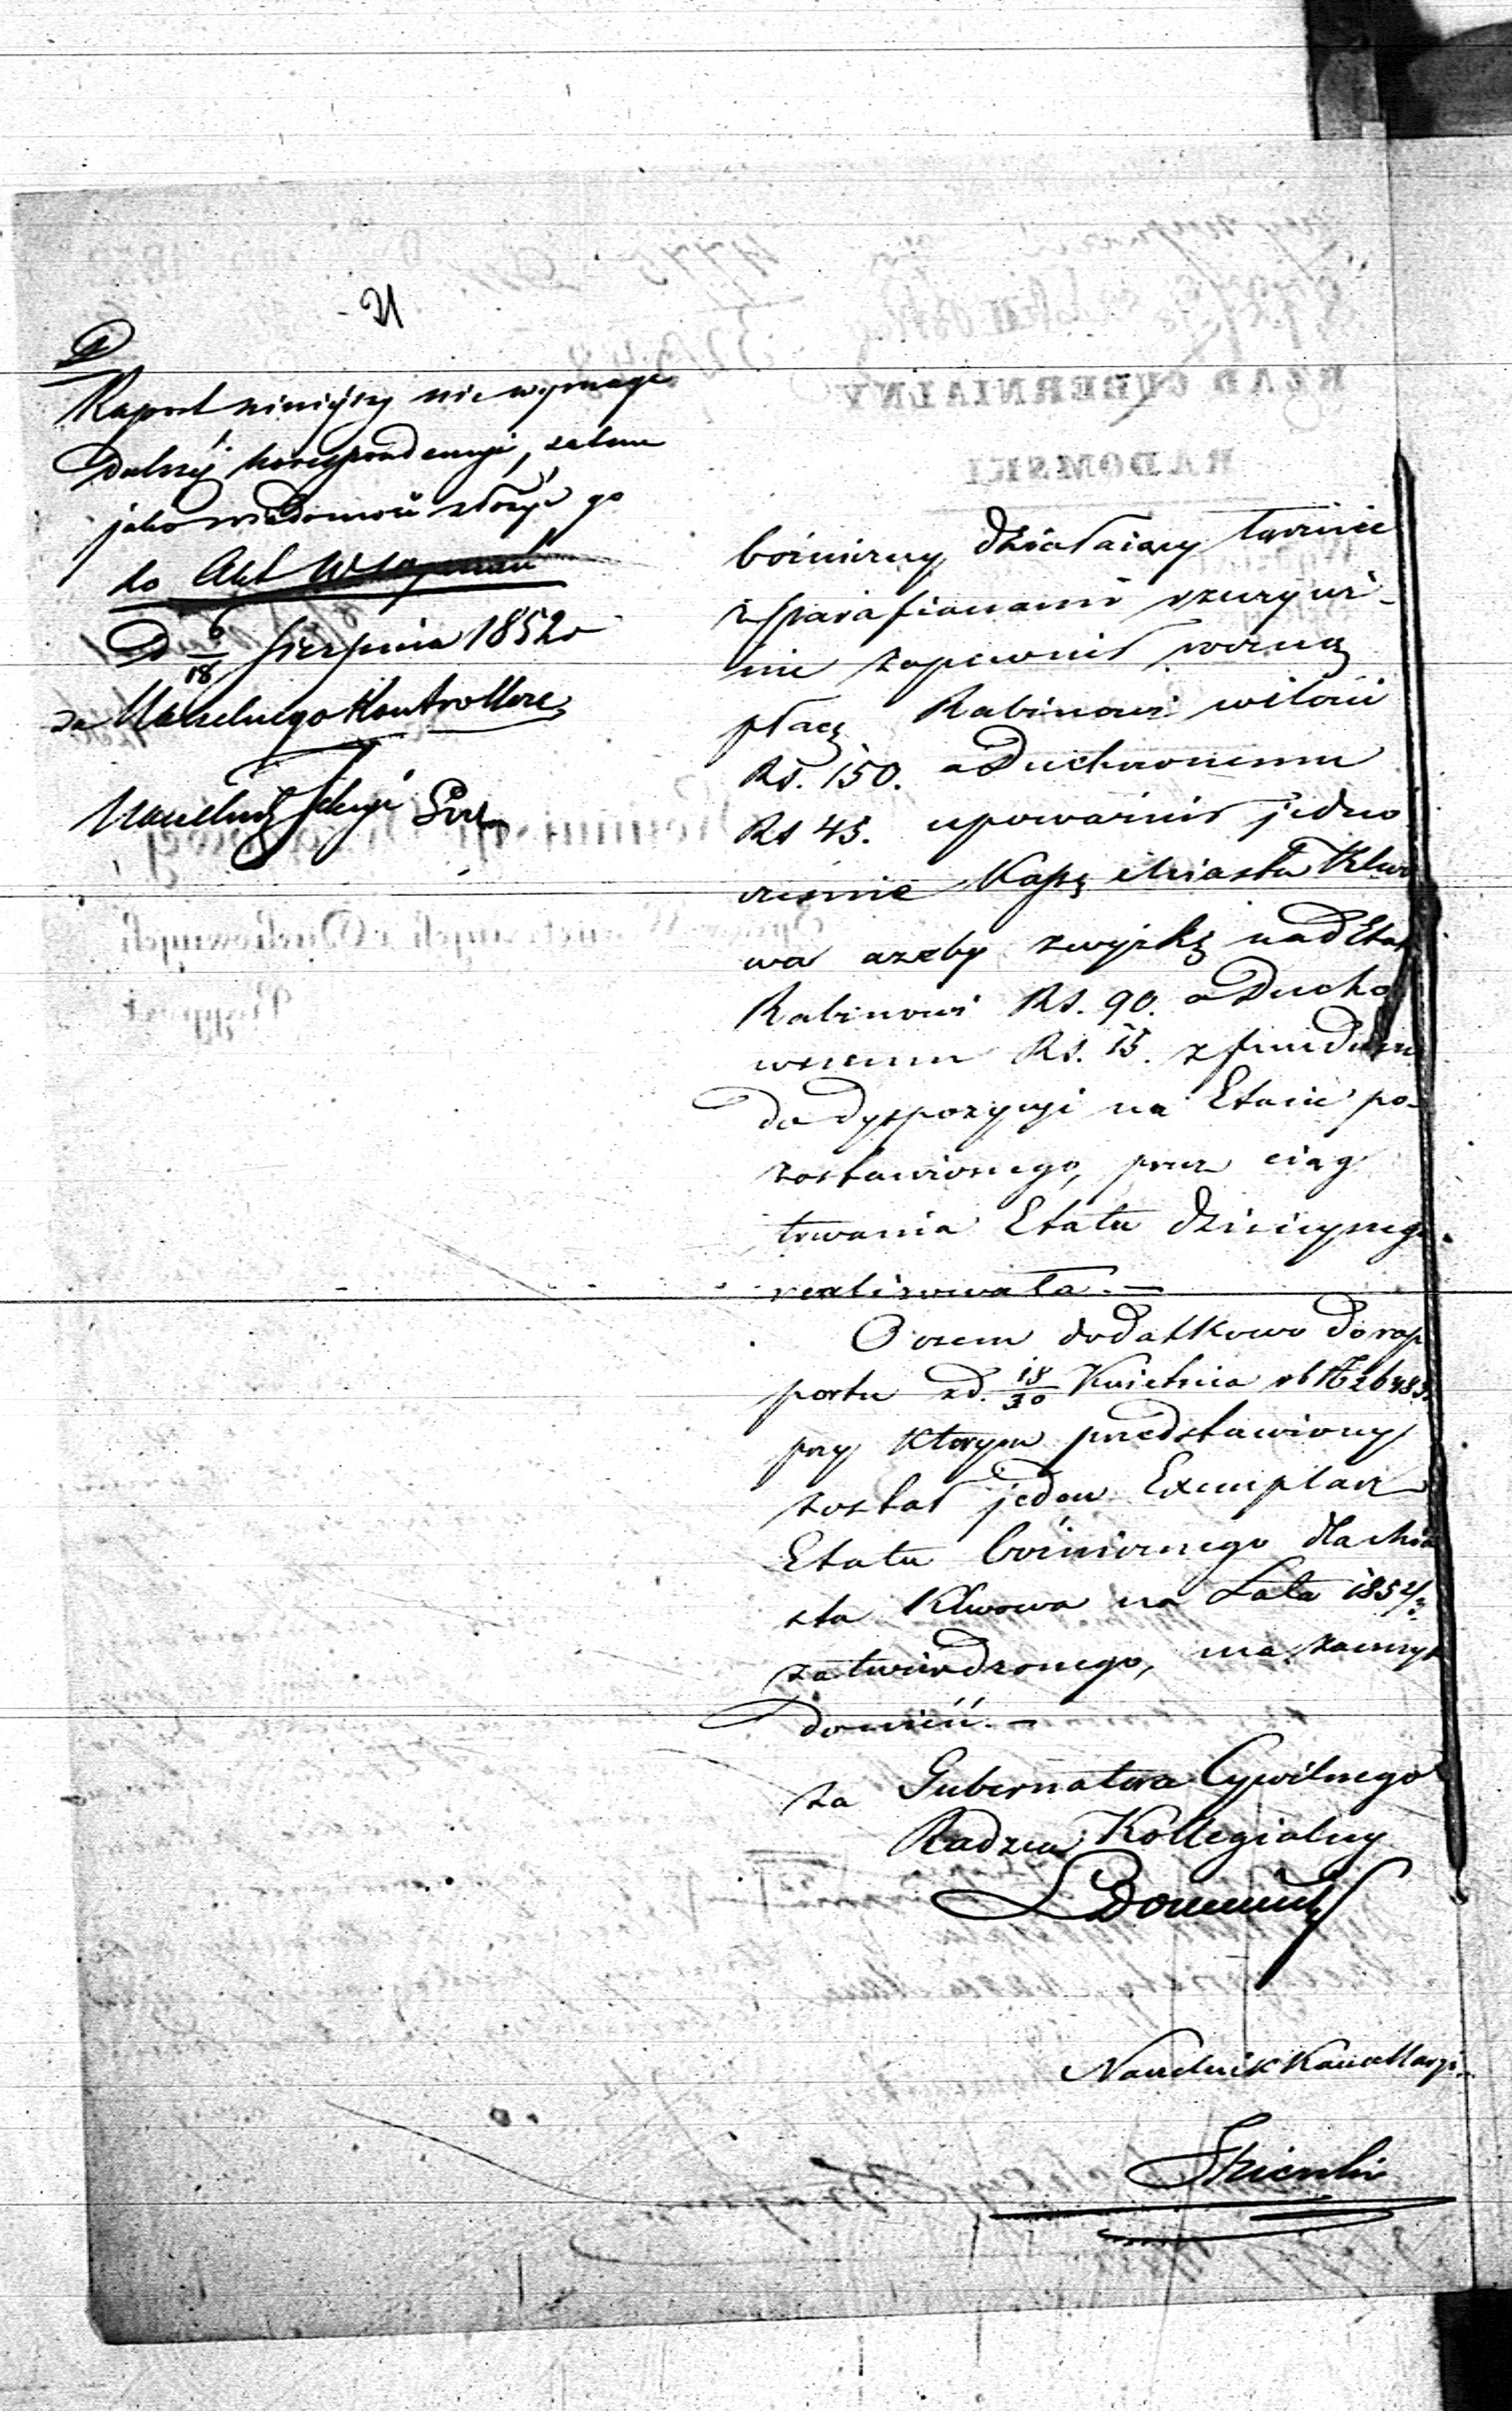 Raport niniejszy nie wymaga
dalszéj korrespondencyi, zatem
jako wiadomość złożyć go
do Akt
D 6/18 Sierpnia 1852 r
za Naczelnego Kontrollera
Naczelnik Sekcyi
bożniczny działaiący łącznie
z parafianami rzeczywi-
ście zapewnił roczną
płacę Rabinowi w ilości
Rs. 150. a Duchownemu
Rs 45. upoważnił jedno
cześnie Kassę Miasta Klwo
wa ażeby zwyżkę nad Etat
Rabinowi Rs. 90. a Ducho
wnemu Rs. 15. z funduszu
do dyspozycyi na Etacie po-
zostawionego, przez ciąg
trwania Etatu dzisieyszego
realizowała.—
O czem dodatkowo do rap
portu z d. 18/30 Kwietnia rb № 26483.
przy którym przedstawiony
został jeden Exemplarz
Etatu bożnicznego dla Mia
sta Klwowa na Lata 185
zatwierdzonego, ma zaszczyt
donieść.—
za Gubernatora Cywilnego
Radzca Kollegialny
Naczelnik Kancellaryi